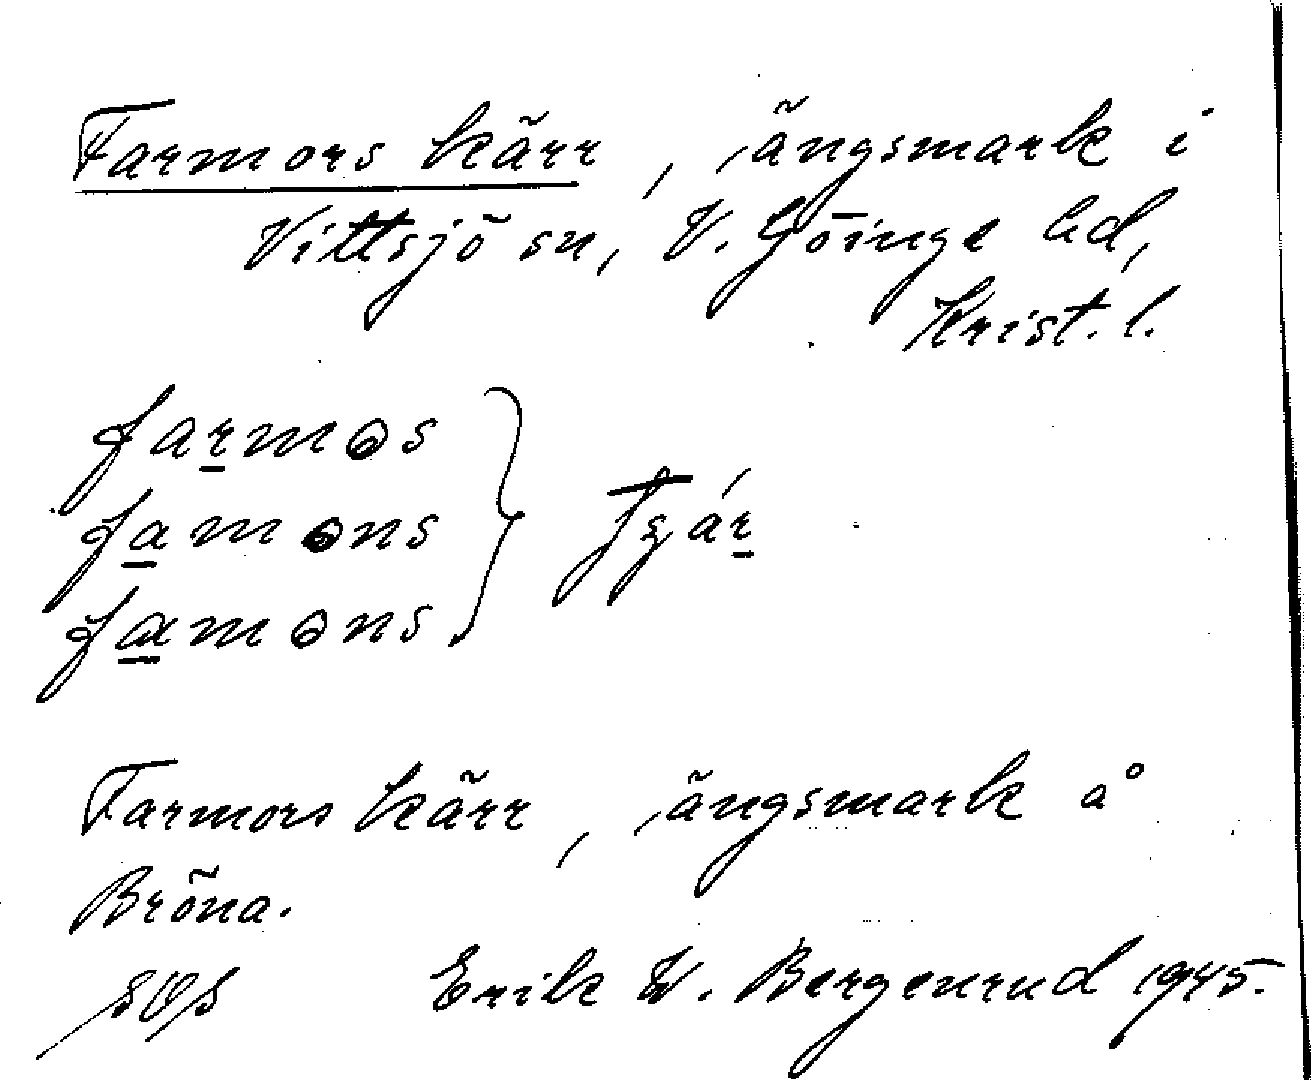 Farmors kärr, ängsmark i
Vittsjö sn, V. Göinge hd,
Krist. l.
farmos
famons
famons
Farmors kärr, ängsmark å
Bröna.
Erik W. Bergenrud 1945.